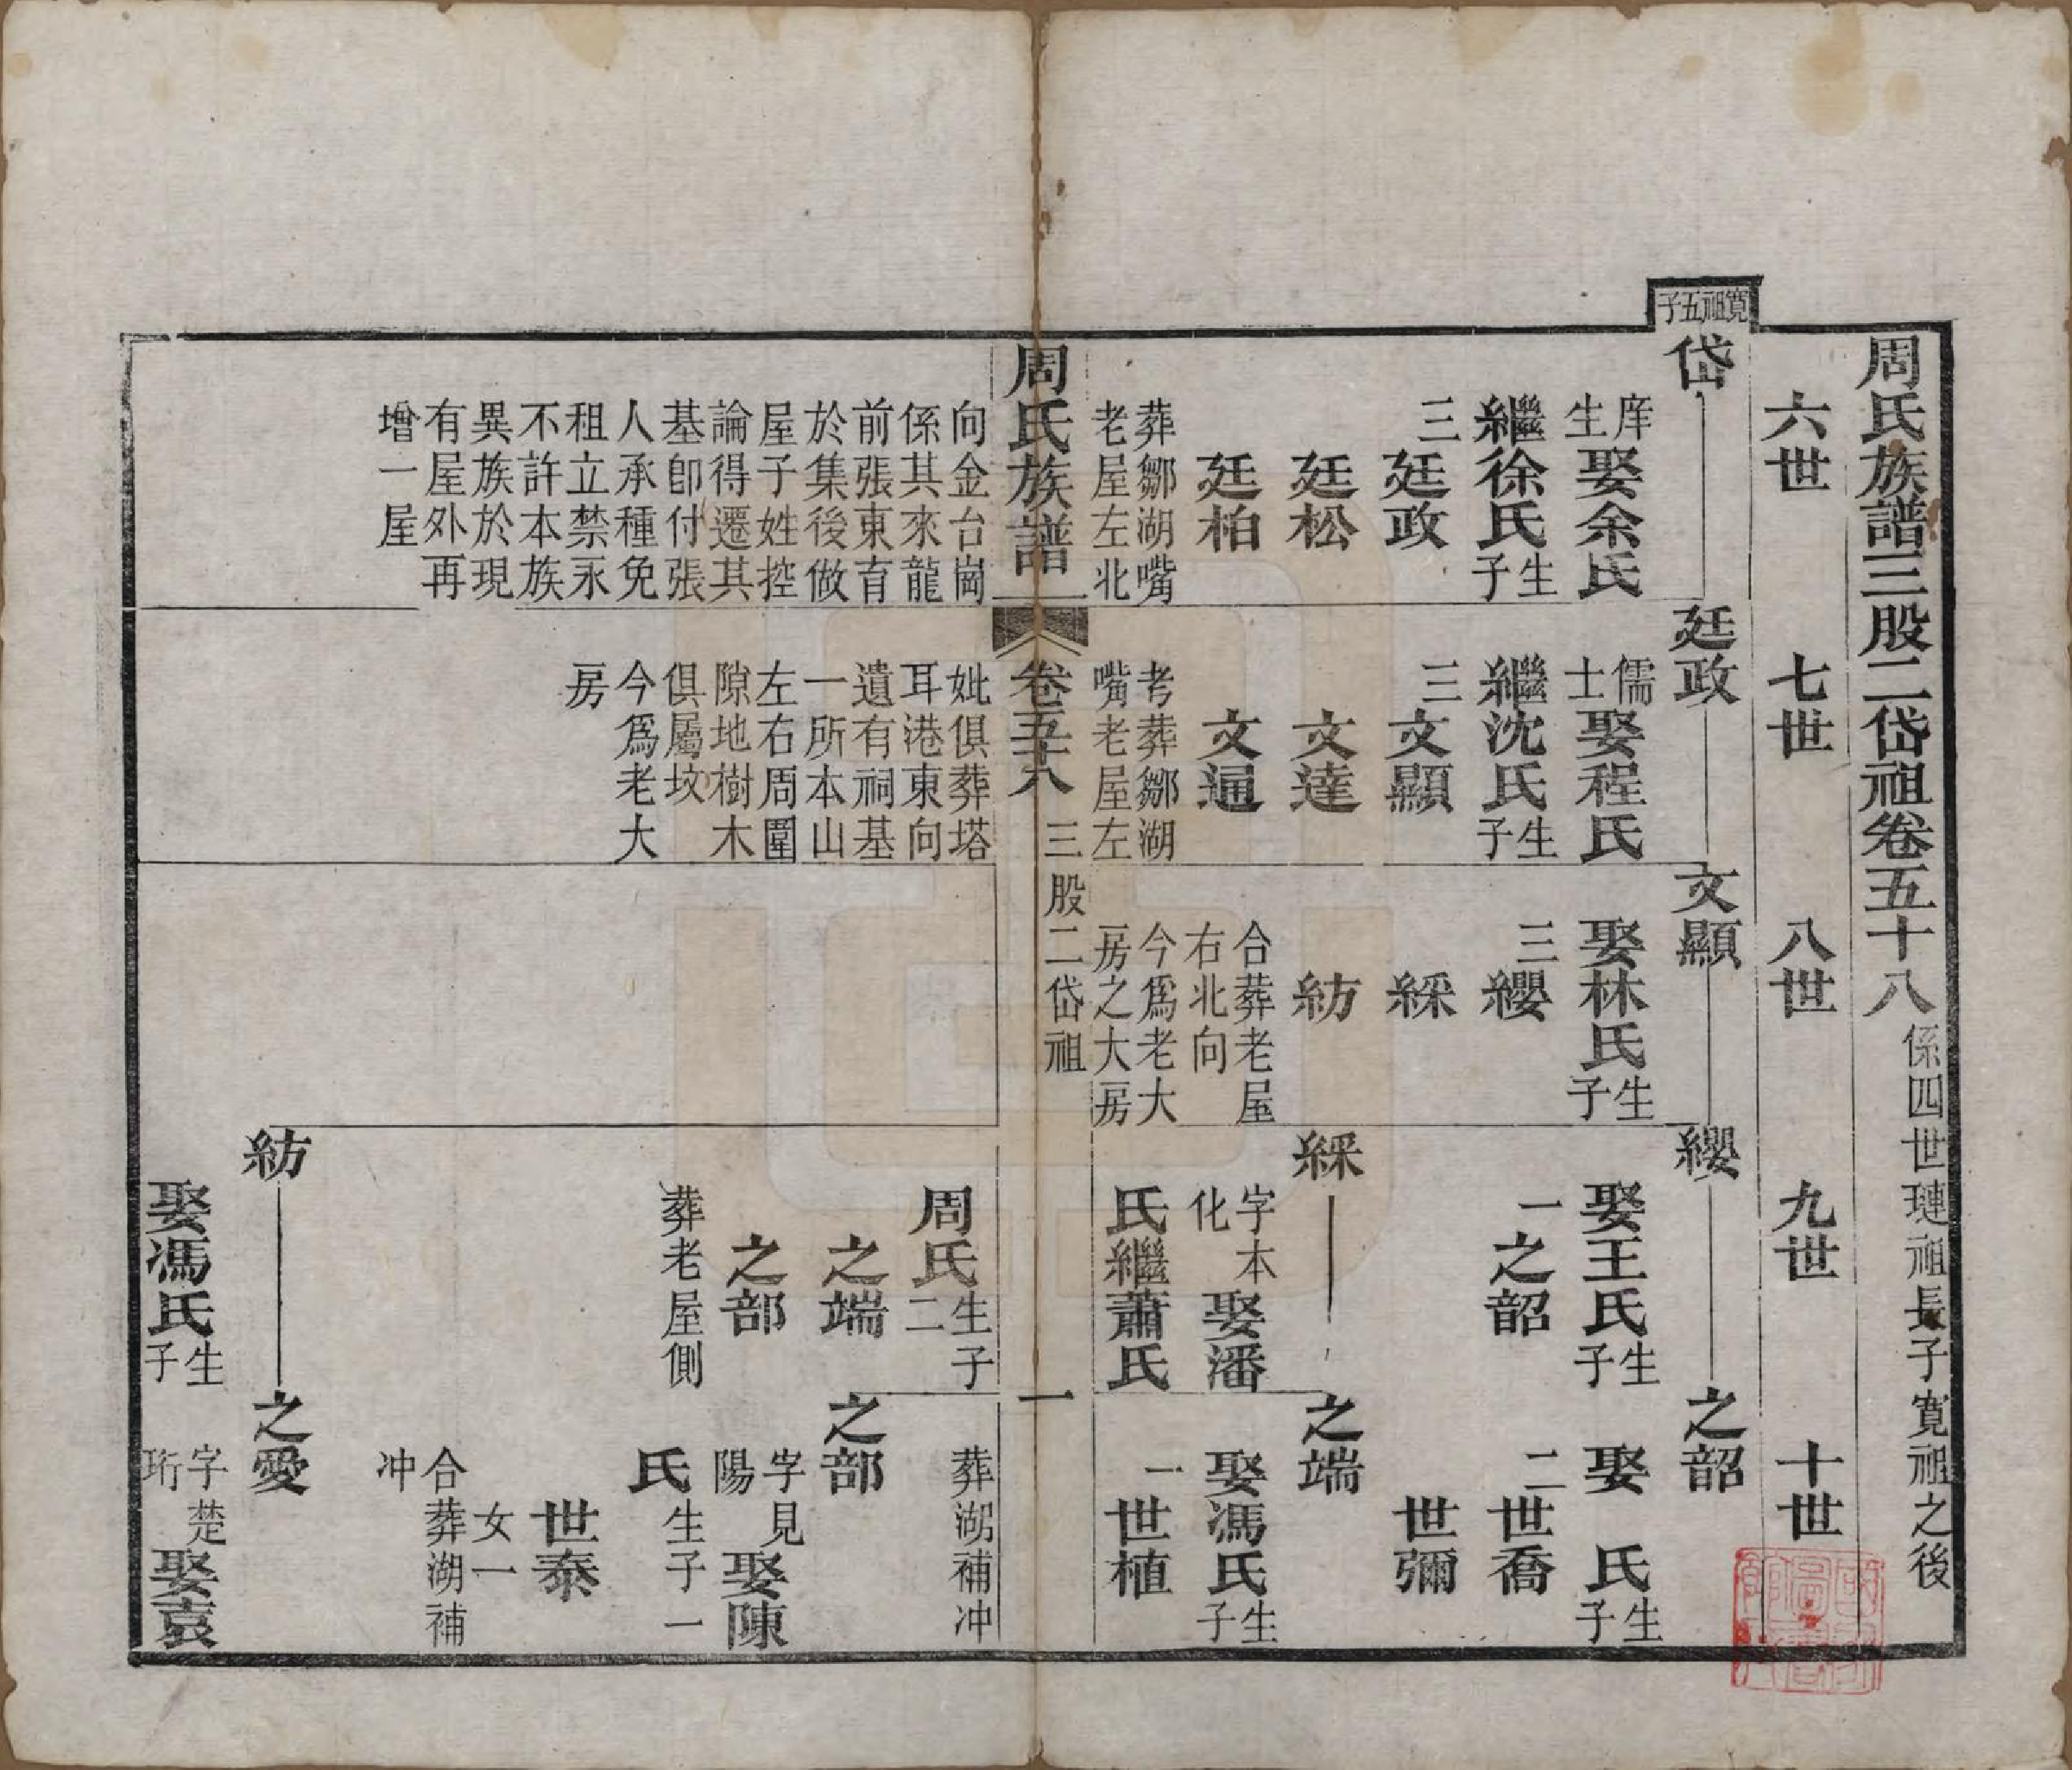 周氏族譜三股二岱祖卷五十八係四世璉祖長子寬祖之後
六世
七世
八世
九世
十世
寬祖五子
岱
庠生娶余氏
繼徐氏生子
三廷政
廷松
廷柏
葬鄒湖嘴
老屋左北
向金台崗
係其來龍
前張東育
於集後做
屋子姓控
論得遷其
基卽付張
人承種免
租立禁永
不許本族
異族於現
有屋外再
增一屋
廷政
儒士娶程氏
繼沈氏生子
三文顯
文達
文通
考葬鄒湖
嘴老屋左
妣俱葬塔
耳港東向
遺有祠基
一所本山
左右周圍
隙地樹木
俱屬坟
今爲老大
房
文顯
娶林氏生子
三纓
綵
紡
合葬老屋
右北向
今爲老大
房之大房
纓
娶王氏生子
一之韶
綵
字本化娶潘
氏繼蕭氏
周氏生子二
之端
之部
葬老屋側
紡
娶馮氏生子
之韶
娶 氏生子
二世喬
世彌
之端
娶馮氏生子
一世植
葬湖補冲
之部
字見陽娶陳
氏生子一
世泰
女一
合葬湖補
冲
之愛
字楚珩娶袁
周氏族譜
卷五十八
三股二岱祖
一